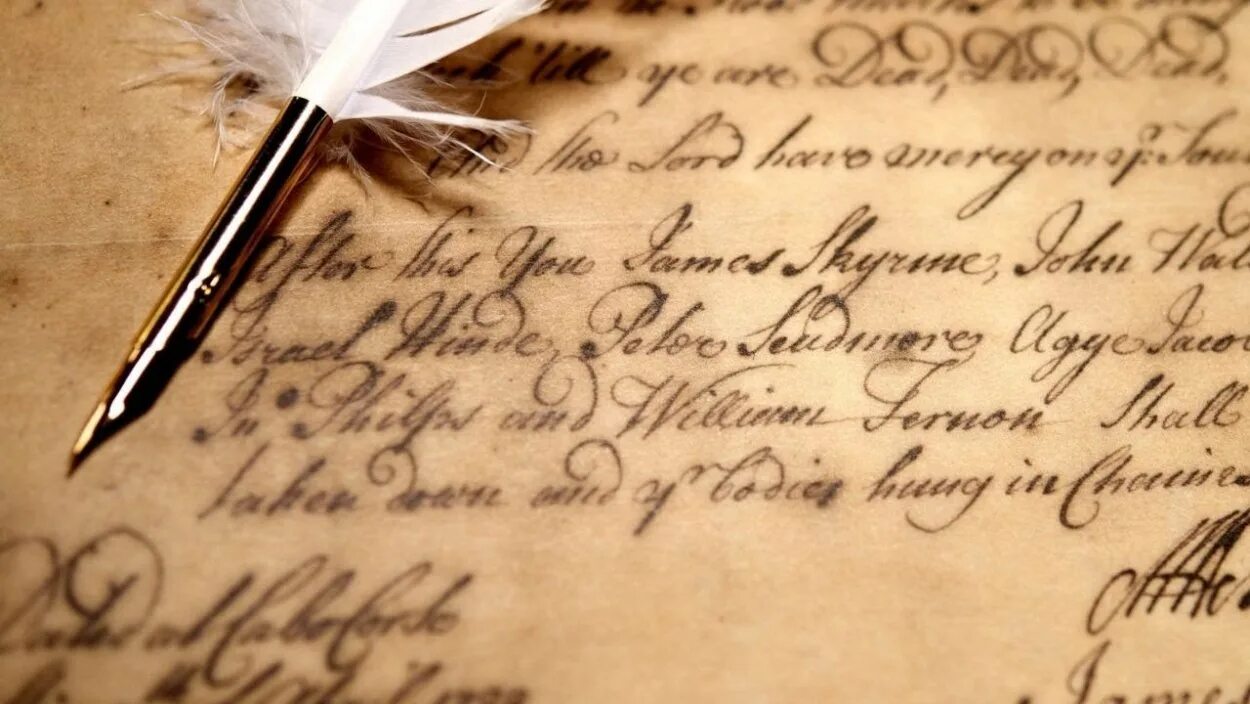 till ye are Dead, Dead, Dead,
And the Lord have mercy on yr. Soul
After this You James Skyrme, John Wal
Israel Hinde, Peter Scudmore Agge Jacob
Jn. Philps and William Fernon Shall
taken down and yr bodies hung in Chaines
Dated at Cabo Corso
James